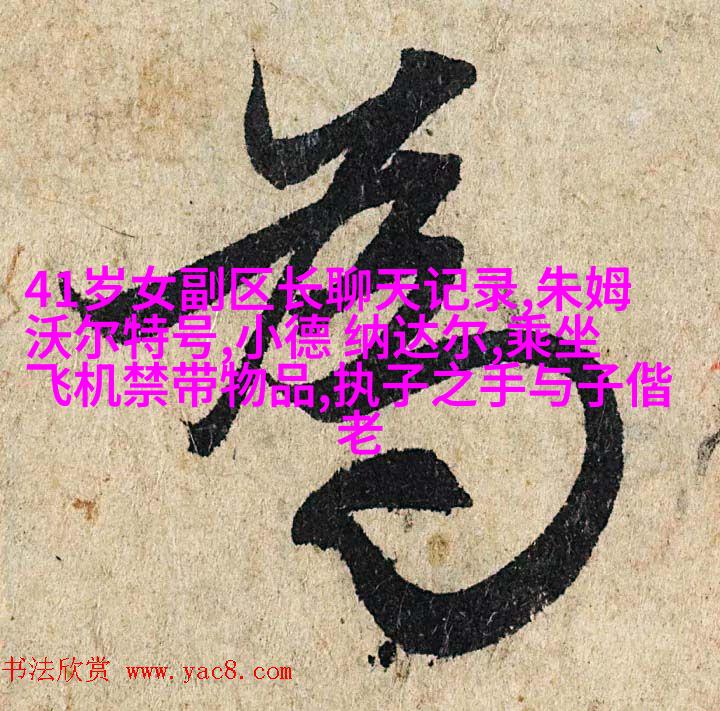 41岁女副区长聊天记录,朱姆
沃尔特号,小德 纳达尔,乘坐
飞机禁带物品,执子之手与子偕
老
书法欣赏 www.yac8.com